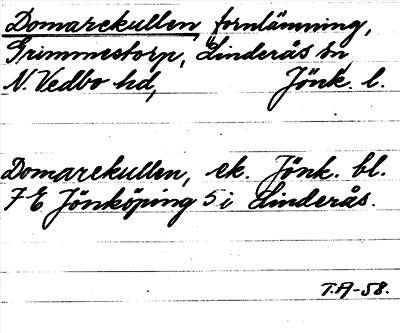 Domarekullen, fornlämning,
Grimmestorp, Linderås sn,
N. Vedbo hd, Jönk. l.
Domarekullen, ek. Jönk. bl.
7 E Jönköping 5 i Linderås.
T.A-58.